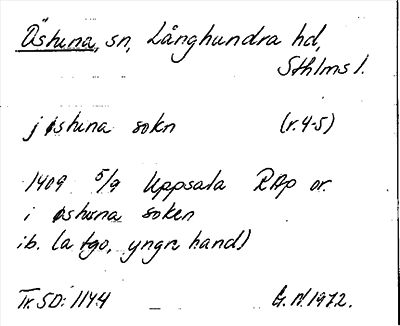 Östuna, sn, Långhundra hd,
Sthlms l.
j østuna sokn (r. 4-5)
1409 5/9 Uppsala RAp or.
i østuna soken
ib. (a tgo, yngre hand)
Tr. SD: 1174
G. N. 1972.